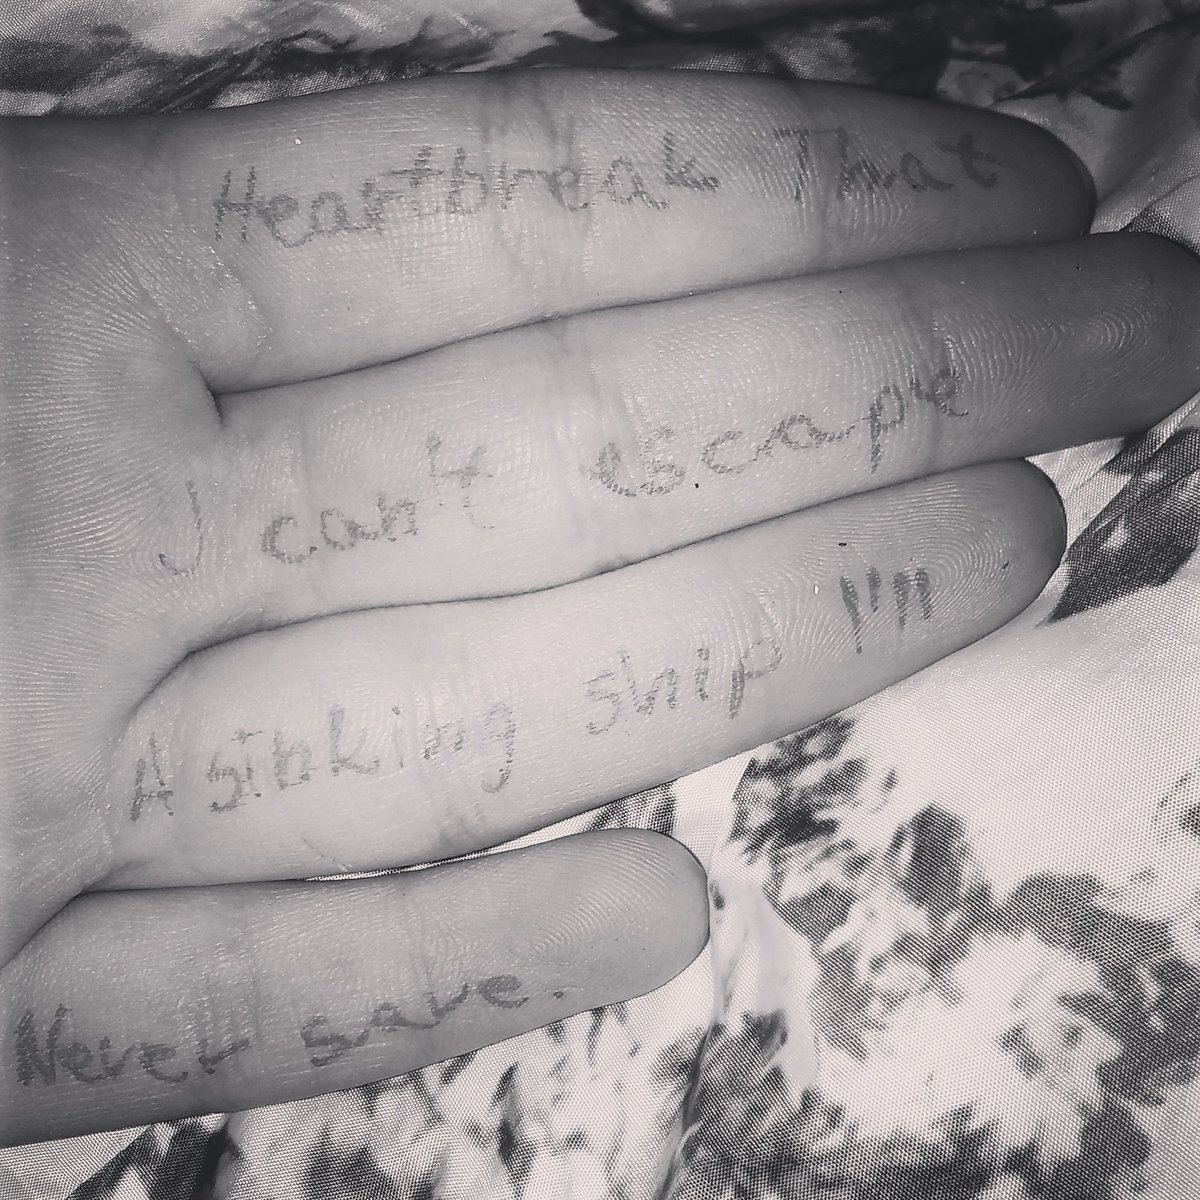 Heartbreak That
I can't escape
A sinking ship I'll
Never save.